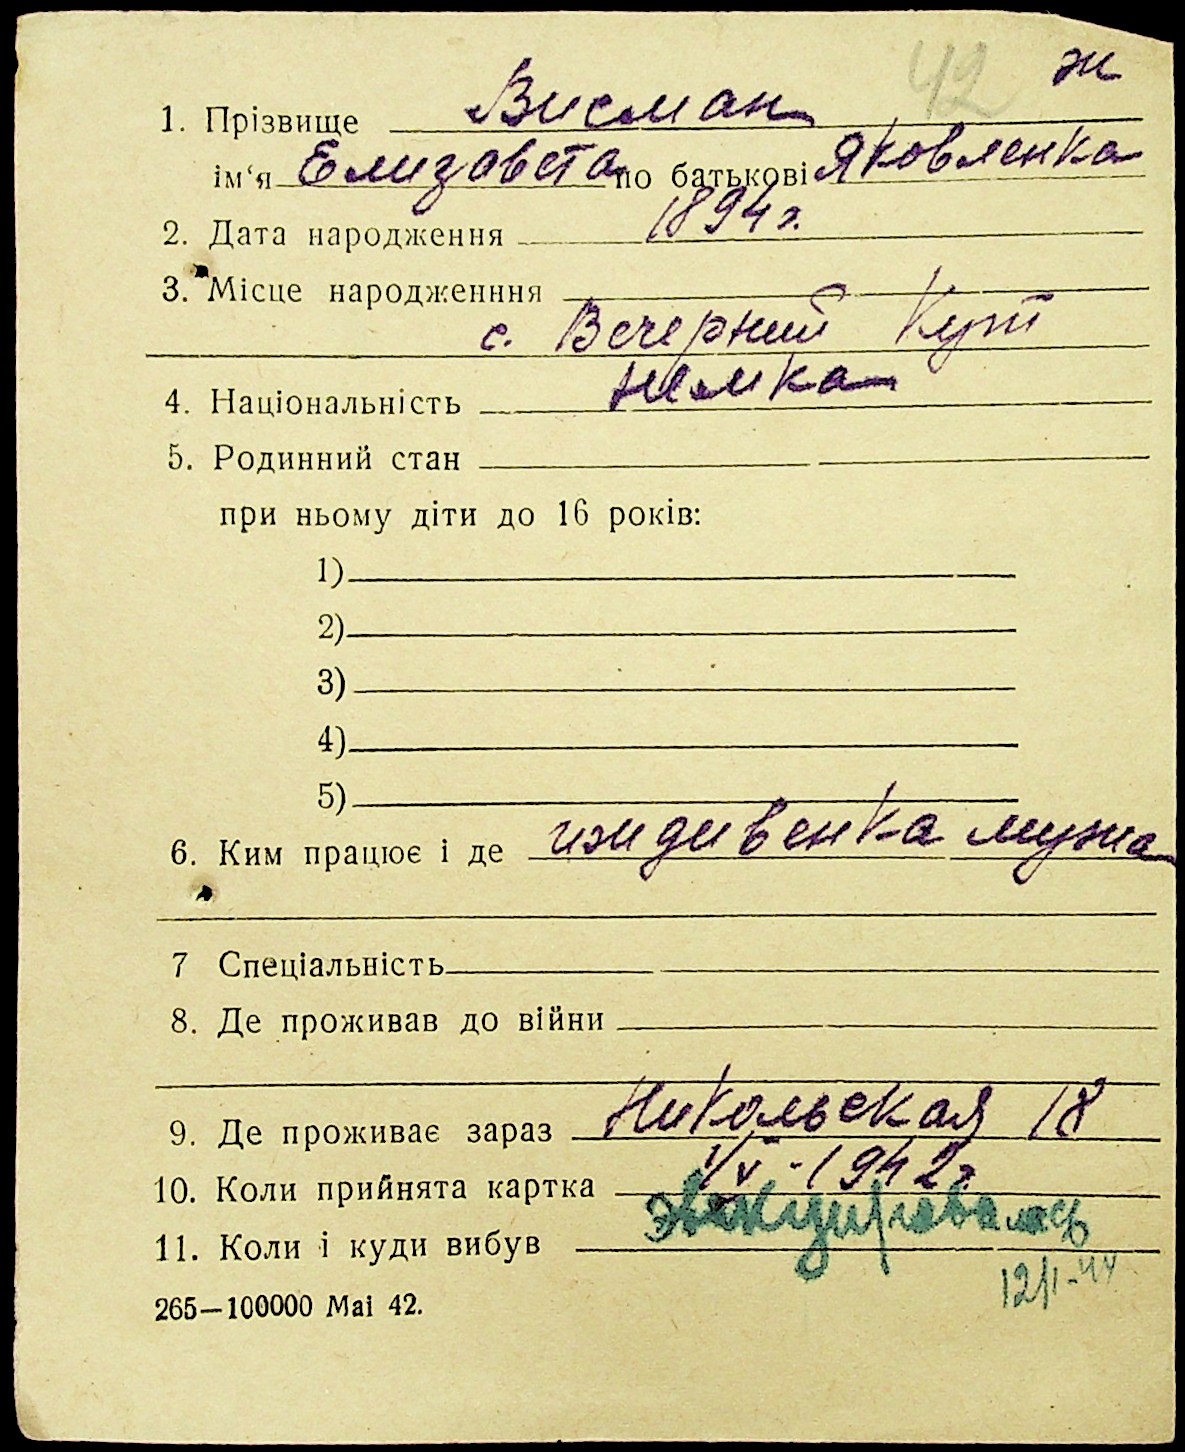 42 ж
1. Прізвище Висман
ім‘я Елизавета по батькові Яковленка
2. Дата народження 1894 г.
3. Місце народженння
с. Вечерний Кут
4. Національність немка
5. Родинний стан
при ньому діти до 16 років:
1)
2)
3)
4)
5)
6. Ким працює і де иждивенка мужа
7 Спеціальність
8. Де проживав до війни
9. Де проживає зараз Никольская 18
10. Коли прийнята картка 1/V - 1942 г.
11. Коли і куди вибув эвакуировалась
12/I-44
265—100000 Маі 42.